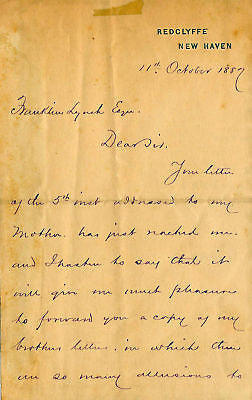 REDCLYFFE
NEW HAVEN
11th October 1887
Franklin Lynch Esqre.
Dear Sir.
Your letter
of the 5th inst addressed to my
Mother, has just reached me.
and I hasten to say that it
will give me much pleasure
to forward you a copy of my
brothers letter, in which there
are so many allusions to